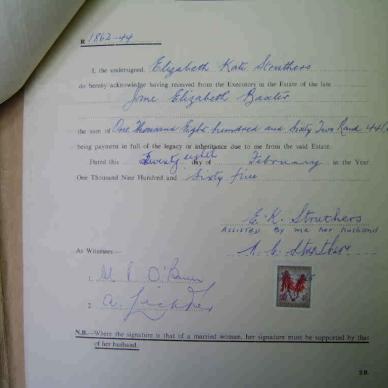 R 1862-44
I, the undersigned, Elizabeth Kate Struthers
do hereby acknowledge having received from the Executors in the Estate of the late
Elizabeth Baxter
the sum of One Thousand Eight hundred and Sixty Two Rand 44
being payment in full of the legacy or inheritance due to me from the said Estate.
Dated this Twenty eight day of February in the Year
One Thousand Nine Hundred and Sixty five
E. K. Struthers
Assisted by me her husband
As Witnesses—
1.
2.
N.B.—Where the signature is that of a married woman, her signature must be supported by that
of her husband.